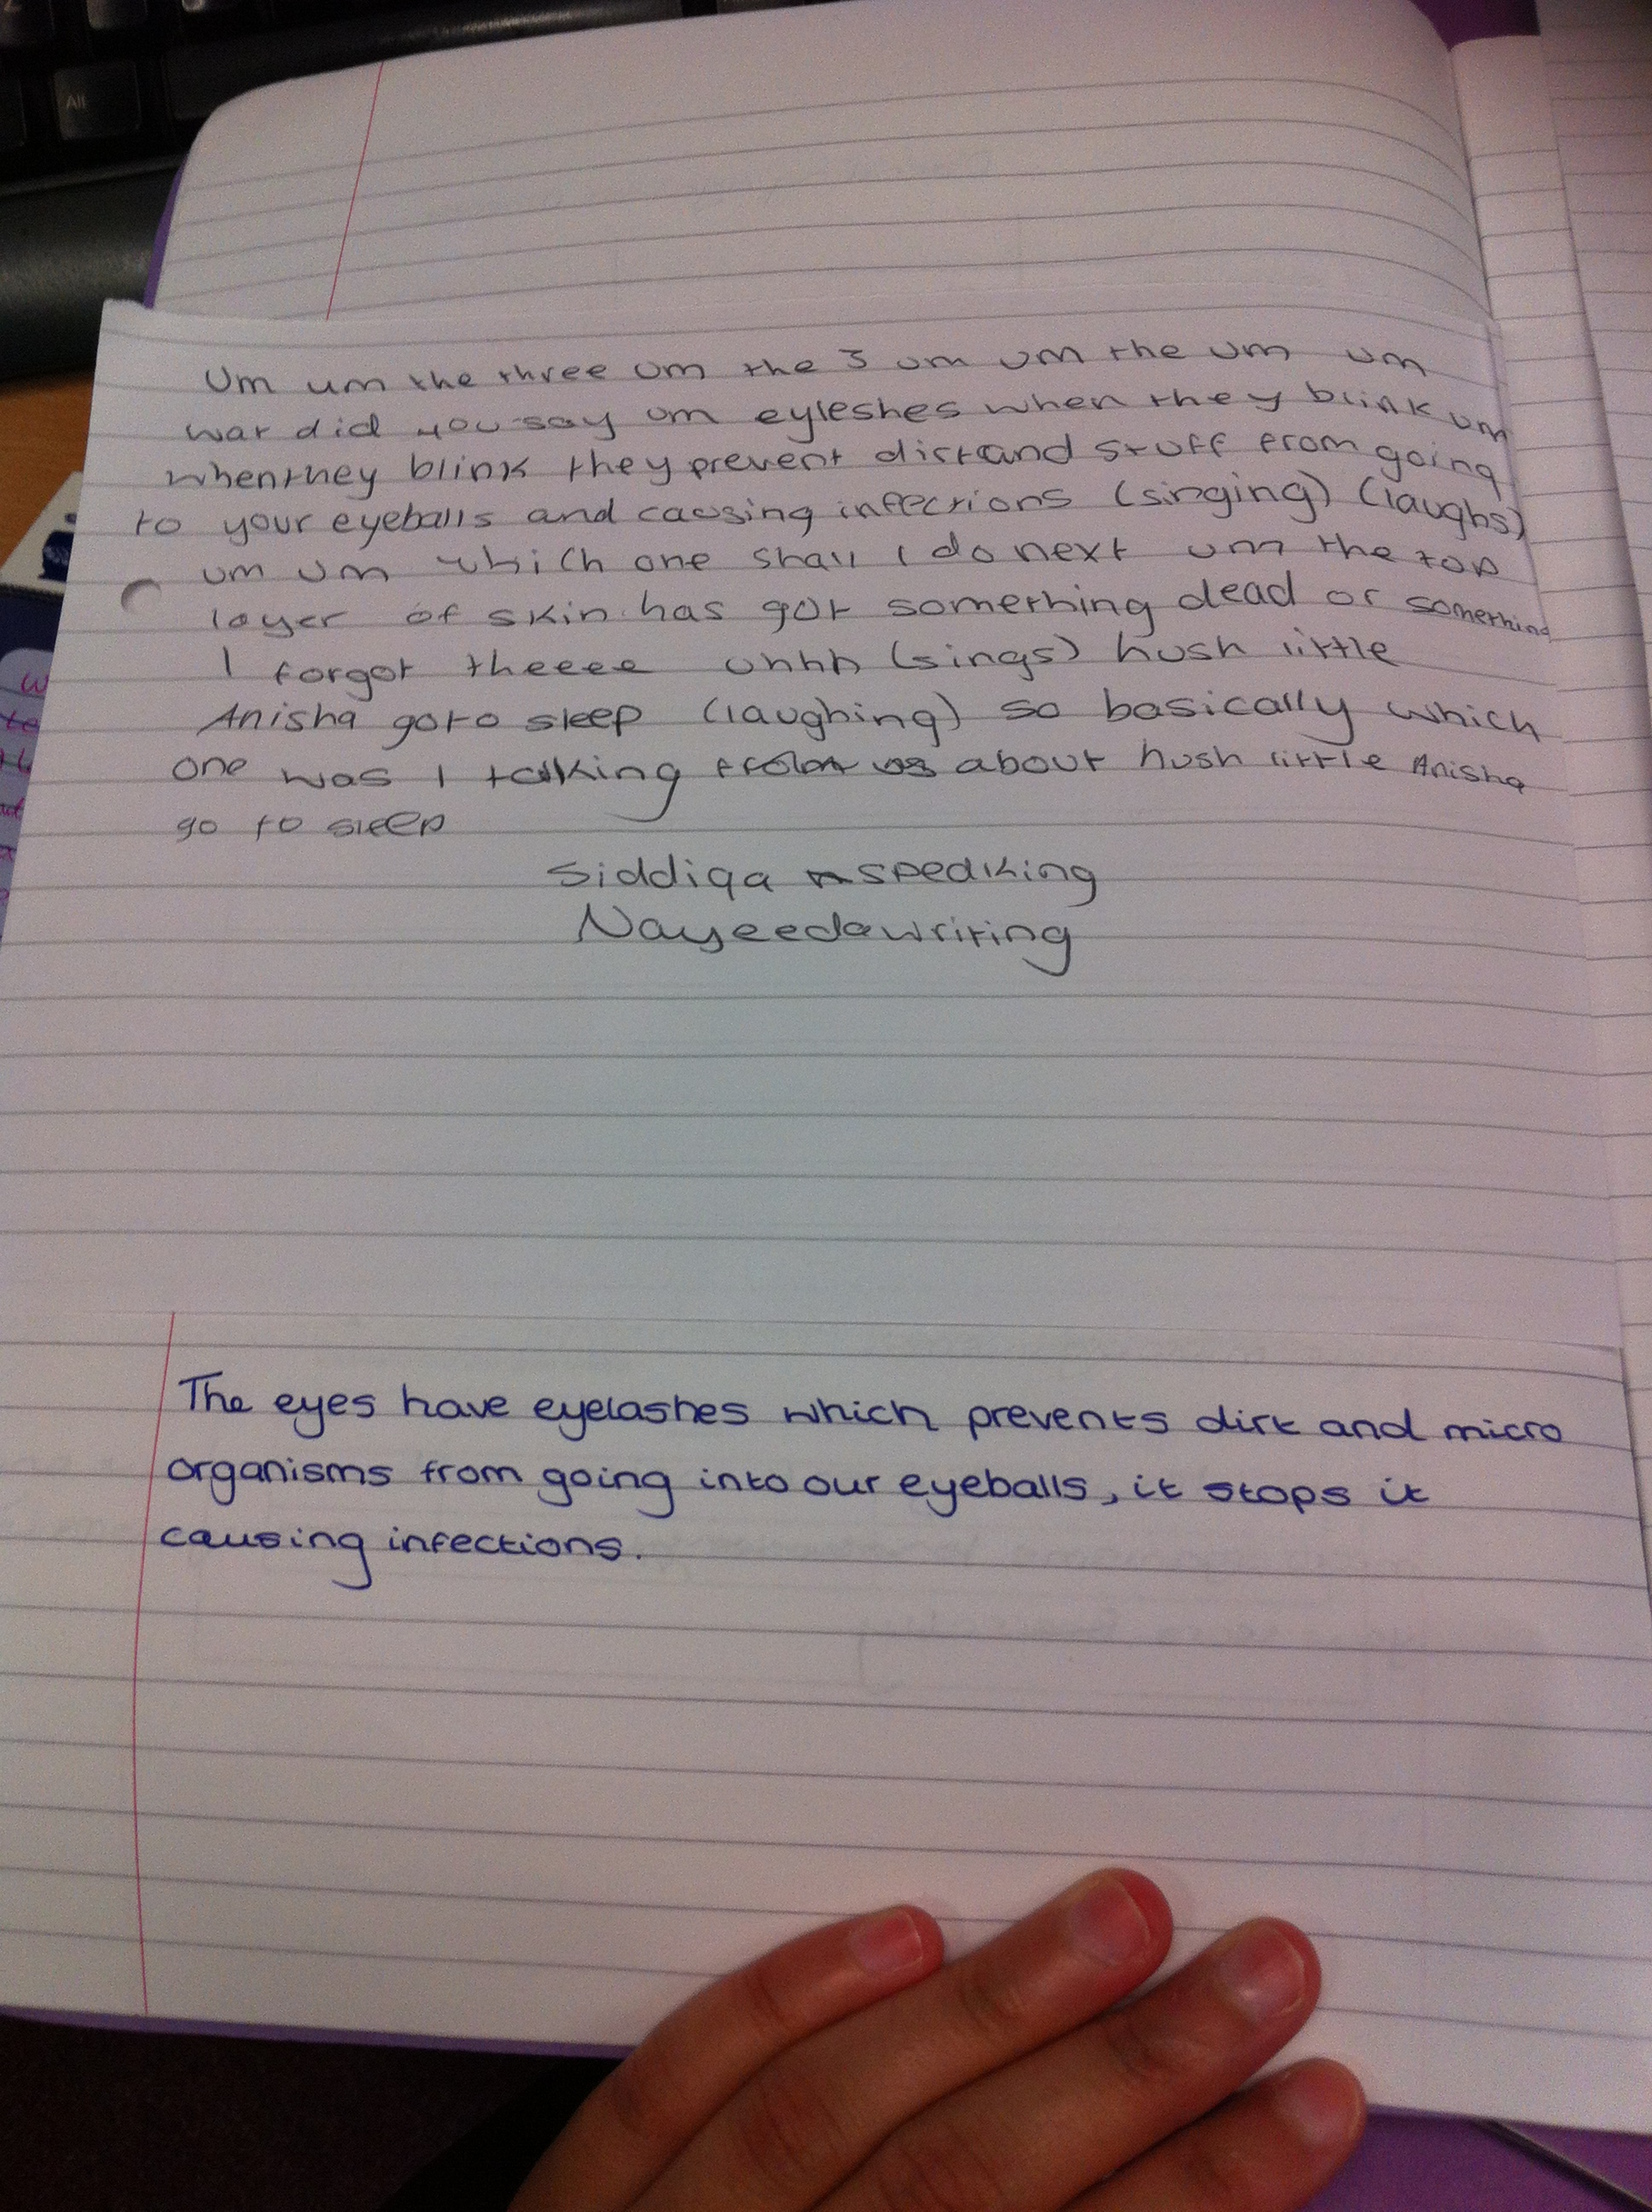 Um um the three um the 3 um um the um um
wat did you say um eyleshes when they blink um
when they blink they prevent dirt and stuff from going
to your eyeballs and causing infections (singing) (laughs)
um um which one shall I do next um the top
layer of skin has got something dead or something
I forgot theeee uhhh (sings) hush little
Anisha go to sleep (laughing) so basically which
one was I talking about hush little Anisha
go to sleep
Siddiqa speaking
Nayeeda writing
The eyes have eyelashes which prevents dirt and micro
organisms from going into our eyeballs, it stops it
causing infections.